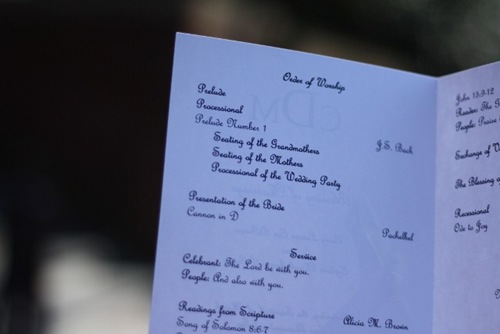 Order of Worship
Prelude
Processional
Prelude Number 1
J.S. Bach
Seating of the Grandmothers
Seating of the Mothers
Processional of the Wedding Party
Presentation of the Bride
Cannon in D
Pachelbel
Service
Celebrant: The Lord be with you.
People: And also with you.
Readings from Scripture
Alicia M. Brown
Song of Solomon 8:6-7
John 15:9-12
Reader: The
People: Praise
Exchange of
The Blessing of
Recessional
Ode to Joy